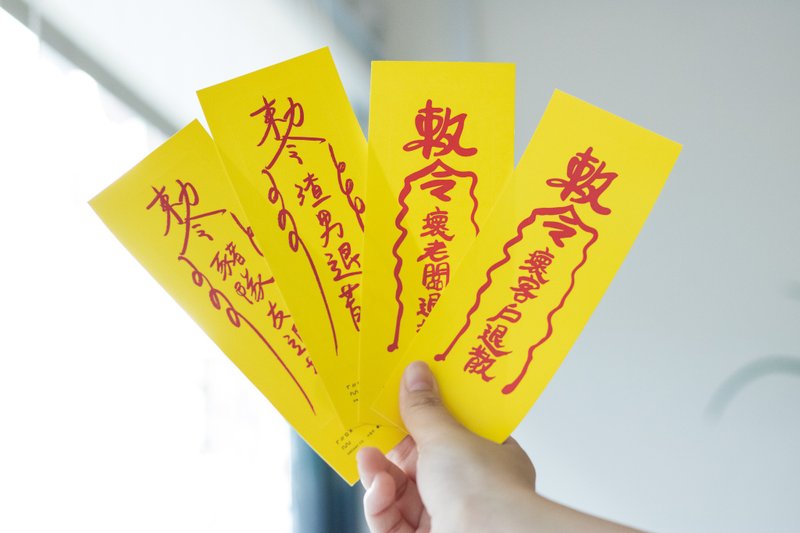 敕令豬隊友退
敕令渣男退
敕令壞老闆退
敕令壞客戶退散